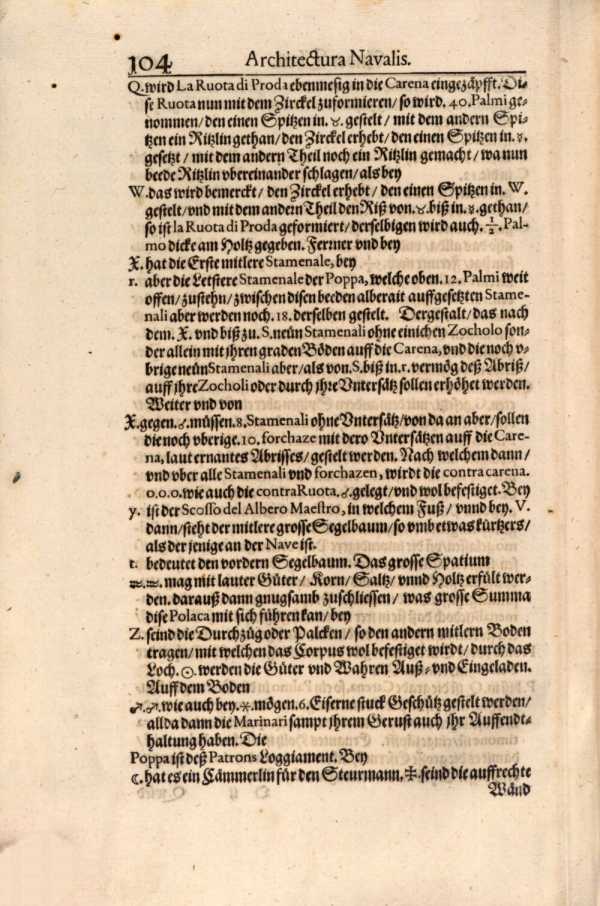 104 Architectura Navalis.
Q. wird La Ruota di Proda ebenmesig in die Carena eingezäpfft. Di-
se Ruota nun mit dem Zirckel zuformieren/ so wird. 40. Palmi ge-
nommen/ den einen Spitzen in. ♉. gestelt/ mit dem andern Spi-
tzen ein Ritzlin gethan/ den Zirckel erhebt/ den einen Spitzen in. ☿.
gesetzt/ mit dem andern Theil noch ein Ritzlin gemacht/ wa nun
beede Ritzlin vbereinander schlagen/ als bey
W. das wird bemerckt/ den Zirckel erhebt/ den einen Spitzen in. W.
gestelt/ vnd mit dem andern Theil den Riß von. ♉. biß in. ☿. gethan/
so ist la Ruota di Proda geformiert/ derselbigen wird auch. 1/2. Pal-
mo dicke am Holtz gegeben. Ferrner vnd bey
X. hat die Erste mitlere Stamenale, bey
r. aber die Letstere Stamenale der Poppa, welche oben. 12. Palmi weit
offen/ zustehn/ zwischen disen beeden alberait auffgesetzten Stame-
nali aber werden noch. 18. derselben gestelt. Dergestalt/ das nach
dem. X. vnd biß zu. S. neün Stamenali ohne einichen Zocholo son-
der allein mit jhren graden Böden auff die Carena, vnd die noch v-
brige neün Stamenali aber/ als von. S. biß in. r. vermög deß Abriß/
auff jhre Zocholi oder durch jhre Vntersätz sollen erhöhet werden.
Weiter vnd von
X. gegen. ♂. müssen. 8. Stamenali ohne Vntersätz/ von da an aber/ sollen
die noch vberige. 10. forchaze mit dero Vntersätzen auff die Care-
na, laut ernantes Abrisses/ gestelt werden. Nach welchem dann/
vnd vber alle Stamenali vnd forchazen, wirdt die contra carena.
o.o.o. wie auch die contra Ruota. ♂. gelegt/ vnd wol befestiget. Bey
y. ist der Scosso del Albero Maestro, in welchem Fuß/ vnnd bey. V.
dann/ steht der mitlere grosse Segelbaum/ so vmb etwas kürtzers/
als der jenige an der Nave ist.
t. bedeutet den vordern Segelbaum. Das grosse Spatium
♒. ♒. mag mit lauter Güter/ Korn/ Saltz/ vnnd Holtz erfült wer-
den. darauß dann gnugsamb zuschliessen/ was grosse Summa
dise Polaca mit sich führen kan/ bey
Z. seind die Durchzüg oder Palcken/ so den andern mitlern Boden
tragen/ mit welchen das Corpus wol befestiget wirdt/ durch das
Loch. ☉. werden die Güter vnd Wahren Auß- vnd Eingeladen.
Auff dem Boden
♐. ♐. wie auch bey. ✳. mögen. 6. Eiserne stuck Geschütz gestelt werden/
allda dann die Marinari sampt jhrem Gerust auch jhr Auffendt-
haltung haben. Die
Poppa ist deß Patrons Loggiament. Bey
☾. hat es ein Cämmerlin für den Steurmann. ✠. seind die auffrechte
Wänd